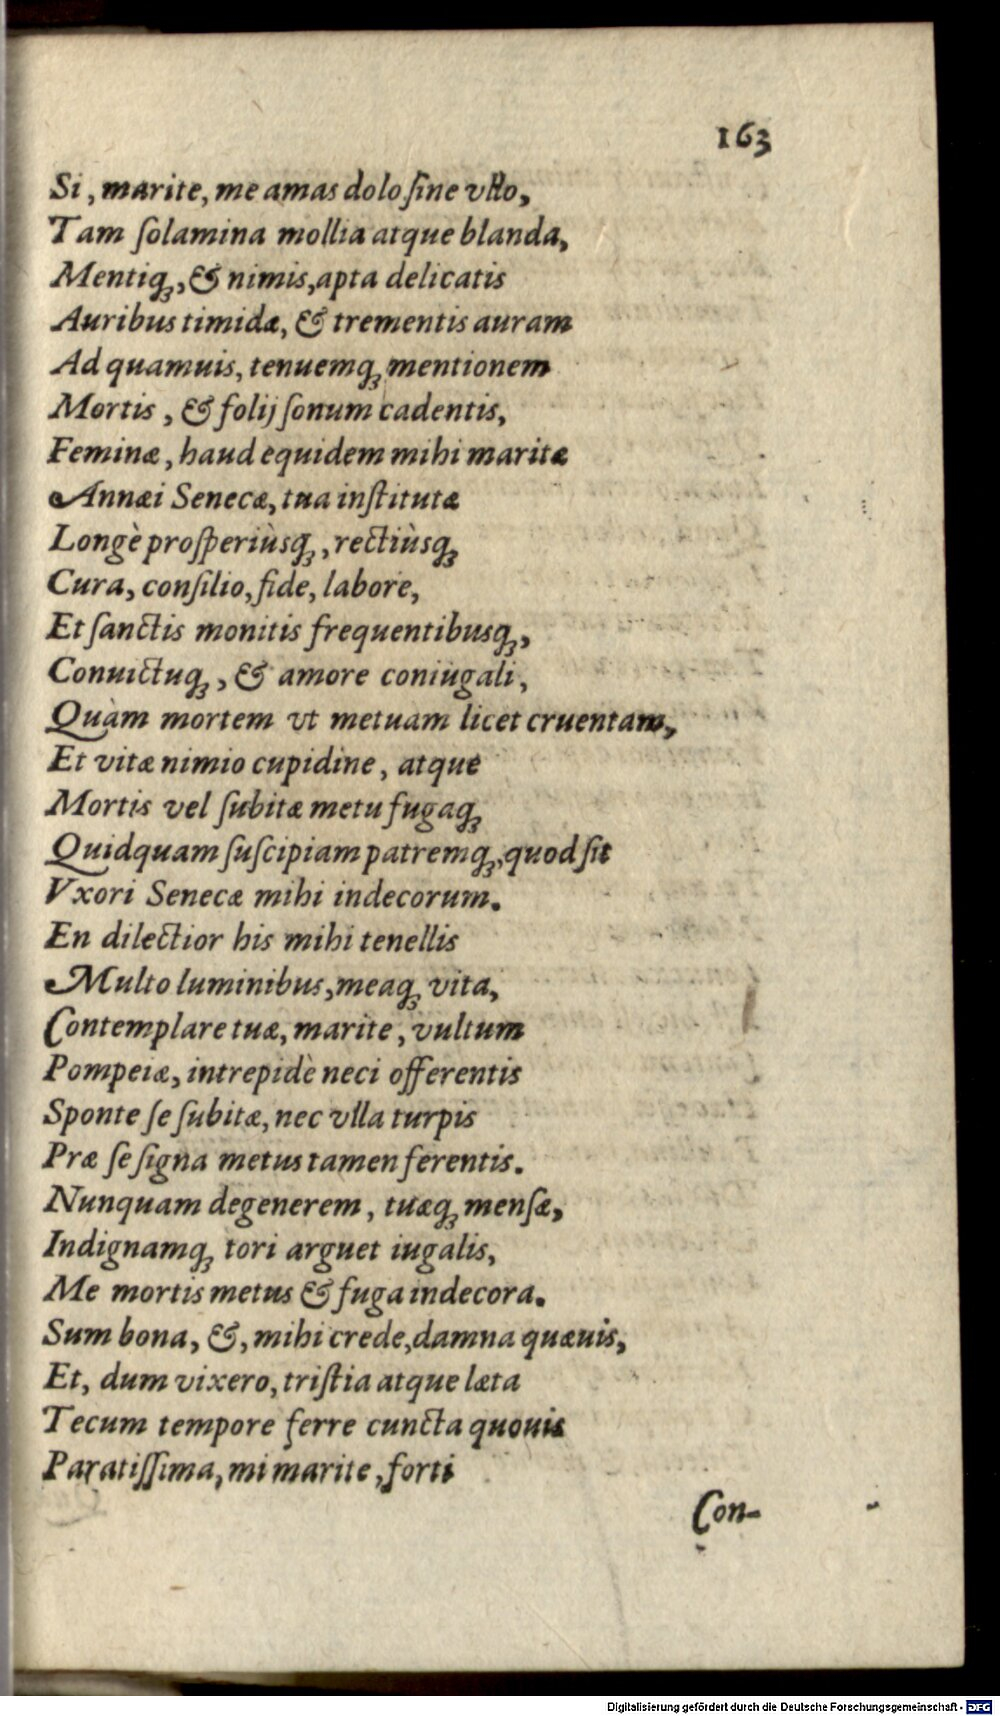 163
Si, marite, me amas dolo ſine vllo,
Tam ſolamina mollia atque blanda,
Mentiq́;, & nimis, apta delicatis
Auribus timidæ, & trementis auram
Ad quamuis, tenuemq́; mentionem
Mortis, & folij ſonum cadentis,
Feminæ, haud equidem mihi maritæ
Annæi Senecæ, tua inſtitutæ
Longè proſperiùsq́;, rectiùsq́;
Cura, conſilio, fide, labore,
Et ſanctis monitis frequentibusq́;,
Conuictuq́;, & amore coniugali,
Quàm mortem vt metuam licet cruentam,
Et vitæ nimio cupidine, atque
Mortis vel ſubitæ metu fugaq́;
Quidquam ſuſcipiam patremq́;, quod ſit
Vxori Senecæ mihi indecorum.
En dilectior his mihi tenellis
Multo luminibus, meaq́; vita,
Contemplare tuæ, marite, vultum
Pompeiæ, intrepidè neci offerentis
Sponte ſe ſubitæ, nec vlla turpis
Præ ſe ſigna metus tamen ferentis.
Nunquam degenerem, tuæq́; menſæ,
Indignamq́; tori arguet iugalis,
Me mortis metus & fuga indecora.
Sum bona, &, mihi crede, damna quæuis,
Et, dum vixero, triſtia atque læta
Tecum tempore ferre cuncta quouis
Paratiſſima, mi marite, forti
Con-
Digitalisierung gefördert durch die Deutsche Forschungsgemeinschaft - DFG